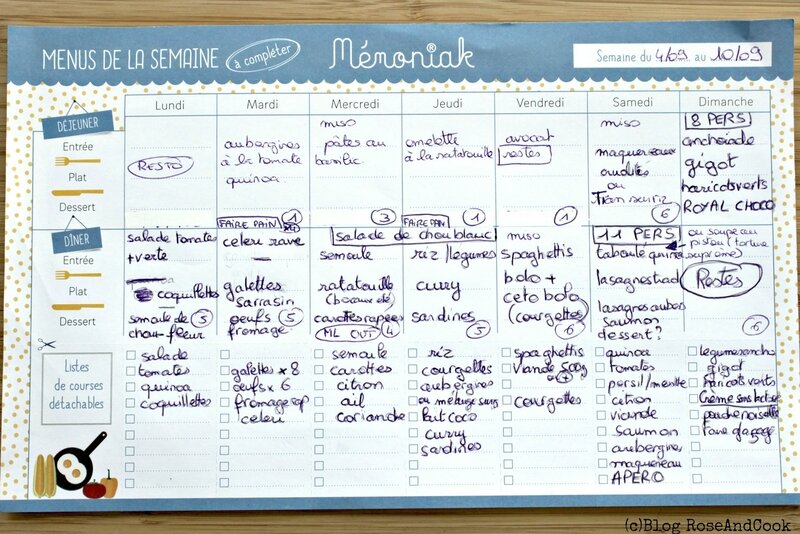 MENUS DE LA SEMAINE
à compléter
Ménoniak
Semaine du 4/09 au 10/09
Lundi Mardi Mercredi Jeudi Vendredi Samedi Dimanche
DÉJEUNER
Entrée
Plat
Dessert
RESTO
aubergines
à la tomate
quinoa
FAIRE PAIN
1
miso
pâtes au
basilic
3
omelette
à la ratatouille
FAIRE PAIN
1
avocat
restes
1
miso
maquereaux
crudités
ou
6
8 PERS
anchoiade
gigot
haricots verts
ROYAL CHOCO
DÎNER
Entrée
Plat
Dessert
salade tomates
+ verte
coquillettes
semoule de
chou-fleur
5
celeri rave
galettes
sarrasin
oeufs
fromage
5
salade de chou blanc
semoule
ratatouille
carottes rapées
4
riz/legumes
curry
sardines
5
miso
spaghettis
bolo +
ceto bolo
(courgettes)
6
11 PERS
taboulé quinoa
lasagnes trad
lasagnes auber
saumon
dessert?
ou soupe au
pistou (tortue
suprème)
Restes
6
Listes
de courses
détachables
salade
tomates
quinoa
coquillettes
galettes x 8
oeufs x 6
fromage rap
celeri
semoule
carottes
citron
ail
coriande
riz
courgettes
aubergines
ou mélange surg
lait coco
curry
sardines
spaghettis
viande 500g
courgettes
quinoa
tomates
persil/menthe
citron
viande
saumon
aubergines
maquereau
APERO
legumes ancho
gigot
haricots verts
Crème sans lactose
poudre noisette
(c)Blog RoseAndCook